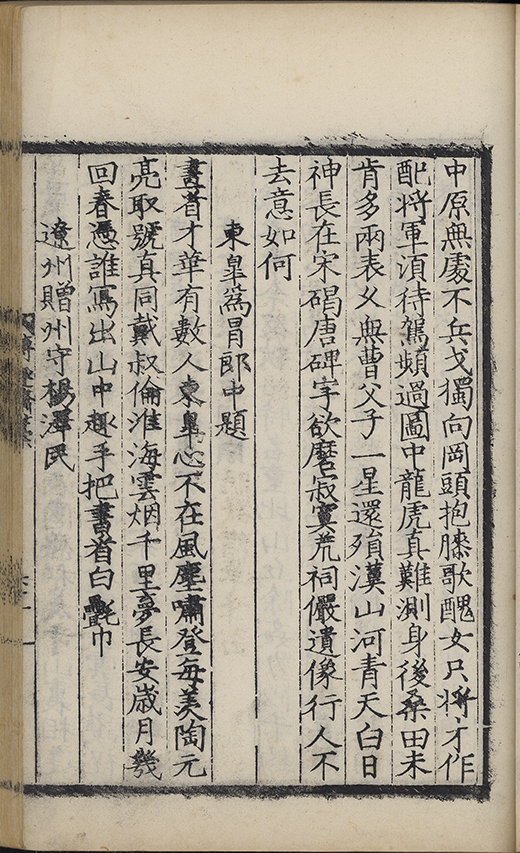 中原無處不兵戈獨向岡頭抱膝歌醜女只將才作
配將軍湏待駕頻過圖中龍虎真難測身後桑田未
肯多兩表乂無曹父子一星還殞漢山河青天白日
神長在宋碣唐碑字欲磨寂寞荒祠儼遺像行人不
去意如何
東皐為冐郎中題
畫省才華有數人東皐心不在風塵嘯登每羨陶元
亮取號真同戴叔倫淮海雲烟千里夢長安歲月幾
回春憑誰寫出山中趣手把書省白氎巾
遼州贈州守楊澤民